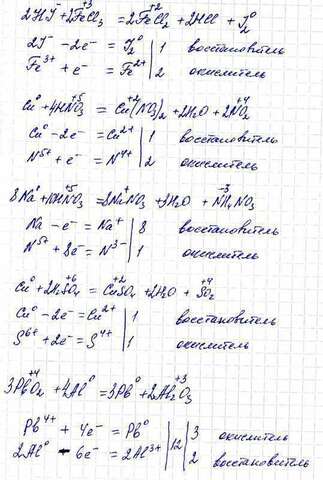 2HI⁻ + 2FeCl₃⁺³ = 2FeCl₂⁺² + 2HCl + I₂⁰
2I⁻ - 2e⁻ = I₂⁰ | 1 восстановитель
Fe³⁺ + e⁻ = Fe²⁺ | 2 окислитель
Cu⁰ + 4HN⁺⁵O₃ = Cu⁺²(NO₃)₂ + 2H₂O + 2N⁺⁴O₂
Cu⁰ - 2e⁻ = Cu²⁺ | 1 восстановитель
N⁵⁺ + e⁻ = N⁴⁺ | 2 окислитель
8Na⁰ + 10HN⁺⁵O₃ = 8Na⁺NO₃ + 3H₂O + N⁻³H₄NO₃
Na - e⁻ = Na⁺ | 8 восстановитель
N⁵⁺ + 8e⁻ = N³⁻ | 1 окислитель
Cu⁰ + 2H₂S⁺⁶O₄ = Cu⁺²SO₄ + 2H₂O + S⁺⁴O₂
Cu⁰ - 2e⁻ = Cu²⁺ | 1 восстановитель
S⁶⁺ + 2e⁻ = S⁴⁺ | 1 окислитель
3Pb⁺⁴O₂ + 4Al⁰ = 3Pb⁰ + 2Al₂⁺³O₃
Pb⁴⁺ + 4e⁻ = Pb⁰ | 12 | 3 окислитель
2Al⁰ - 6e⁻ = 2Al³⁺ | 2 восстановитель